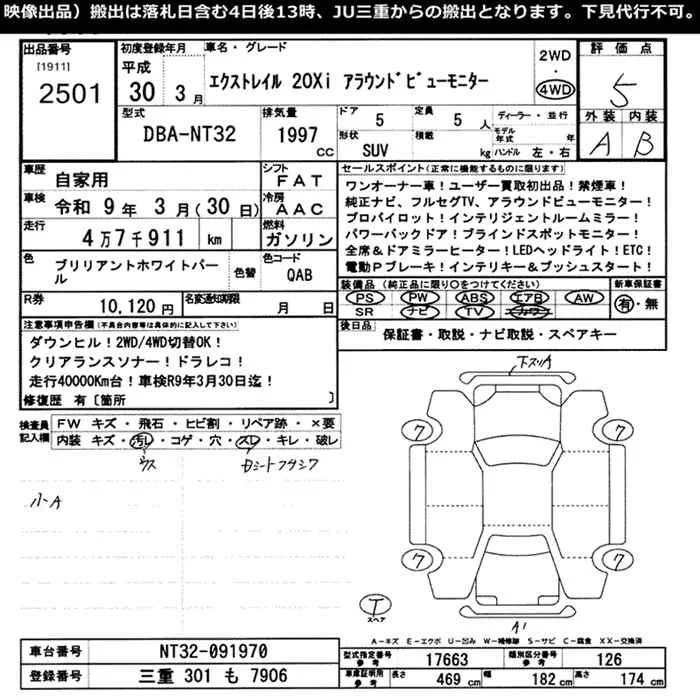 映像出品）搬出は落札日含む4日後13時、JU三重からの搬出となります。下見代行不可。
出品番号
[1911]
2501
初度登録年月
平成
30 3月
車名・グレード
エクストレイル 20Xi アラウンドビューモニター
2WD
4WD
評価点
5
外装 内装
A B
型式
DBA-NT32
排気量
1997
CC
ドア
5
定員
5 人
形状
SUV
積載
kg
ディーラー・並行
モデル年式 年
ハンドル 左・右
車歴
自家用
シフト
FAT
車検
令和 9年 3月(30日)
冷房
AAC
走行
4万7千911 km
燃料
ガソリン
色
ブリリアントホワイトパール
色替
色コード
QAB
R券
10,120円
名変通知期限
月 日
セールスポイント(正常に機能するものに限ります)
ワンオーナー車！ユーザー買取初出品！禁煙車！
純正ナビ、フルセグTV、アラウンドビューモニター！
プロパイロット！インテリジェントルームミラー！
パワーバックドア！ブラインドスポットモニター！
全席＆ドアミラーヒーター！LEDヘッドライト！ETC！
電動Pブレーキ！インテリキー＆プッシュスタート！
装備品 (純正品に限り○をつけてください)
PS PW ABS エアB AW
SR ナビ TV カワー
新車保証書
有・無
後日品
保証書・取説・ナビ取説・スペアキー
注意事項申告欄(不具合内容等は具体的に記入して下さい)
ダウンヒル！2WD/4WD切替OK！
クリアランスソナー！ドラレコ！
走行40000Km台！車検R9年3月30日迄！
修復歴 有〔箇所 〕
検査員記入欄
FW キズ・飛石・ヒビ割・リペア跡・×要
内装 キズ・汚レ・コゲ・穴・スレ・キレ・破レ
ウス
小A
下スリA
7 7
7 7
T
スペア
A1
A-キズ E-エクボ U-凹み W-補修跡 S-サビ C-腐食 XX-交換済
車台番号
NT32-091970
登録番号
三重 301 も 7906
型式指定番号
参考
17663
類別区分番号
参考
126
車庫証明用
参考
長さ
469 cm
幅
182 cm
高さ
174 cm